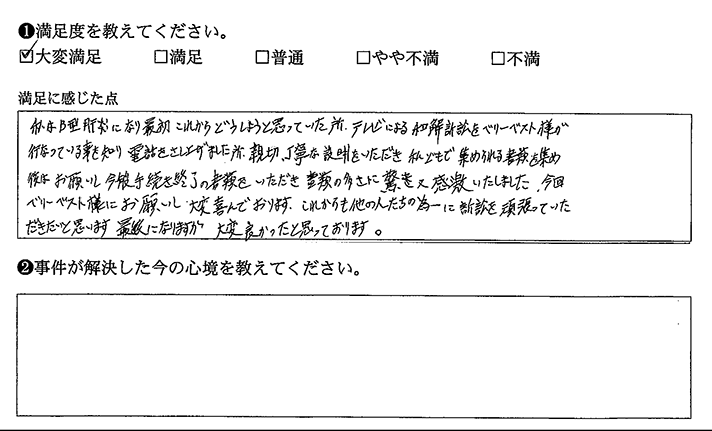 ❶満足度を教えてください。
☑大変満足 □満足 □普通 □やや不満 □不満
満足に感じた点
私はB型肝炎になり最初これからどうしようと思っていた所、テレビによる和解訴訟をベリーベスト様が
行なっている事を知り電話をさし上げました所、親切、丁寧な説明をいただき私どもで集められる書類を集め
後はお願いし今般手続き終了の書類をいただき書類の多さに驚き又感激いたしました。今回
ベリーベスト様にお願いし大変喜んでおります。これからも他の人たちの為に訴訟を頑張っていた
だきたいと思います最後になりますが大変良かったと思っております。
❷事件が解決した今の心境を教えてください。